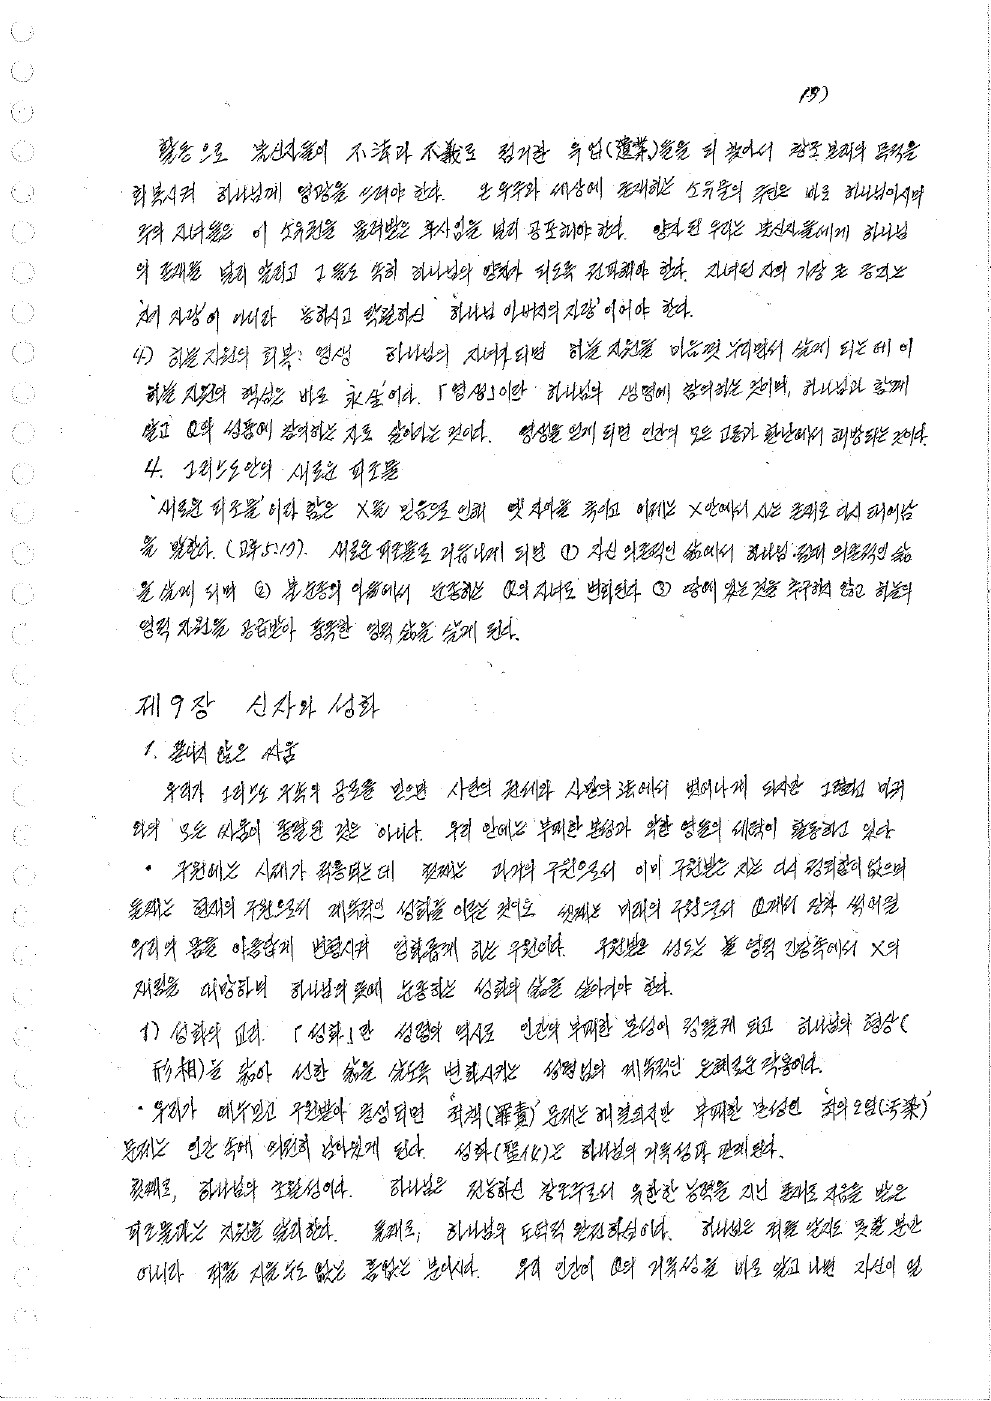 활동으로 불신자들이 不法과 不義로 점거한 유업(遺業)들을 되찾아서 창조 본래의 목적을
회복시켜 하나님께 영광을 드려야 한다. 온 우주와 세상에 존재하는 소유물의 주인은 바로 하나님이시며
주의 자녀들은 이 소유권을 물려받은 후사임을 널리 공포해야 한다. 양자된 우리는 불신자들에게 하나님
의 존재를 널리 알리고 그들도 속히 하나님의 양자가 되도록 전파해야 한다. 자녀된 자의 가장 큰 증거는
자랑'이 아니라 '하나님 아버지의 자랑'이어야 한다.
4) 하늘 자원의 회복: 영생 하나님의 자녀가 되면 하늘 자원을 마음껏 누리면서 살게 되는데 이
하늘 자원의 핵심은 바로 永生이다. 「영생」이란 하나님의 생명에 참여하는 것이며, 하나님과 함께
살고 Q의 성품에 참여하는 자로 살아가는 것이다. 영생을 얻게 되면 인간의 모든 고통과 환난에서 해방되는 것이다.
4. 그리스도안의 새로운 피조물
'새로운 피조물'이라 함은 X를 믿음으로 인해 옛 자아를 죽이고 이제는 X안에서 사는 존재로 다시 태어남
을 말한다. (고후5:17). 새로운 피조물로 거듭나게 되면 ① 자신 의존적인 삶에서 하나님 의존적인 삶
을 살게 되며 ② 불순종의 아들에서 순종하는 Q의 자녀로 변화된다 ③ 땅에 있는 것을 추구하지 않고 하늘의
영적 자원을 공급받아 풍족한 영적 삶을 살게 된다.
제9장 신자와 성화
1. 끝나지 않은 싸움
우리가 그리스도 구속의 공로를 믿으면 사탄의 권세와 사망의 法에서 벗어나게 되지만 그렇다고 마귀
와의 모든 싸움이 종말된 것은 아니다. 우리 안에는 부패한 본성과 악한 영들의 세력이 활동하고 있다
• 구원에는 시제가 적용되는데 첫째는 과거의 구원으로서 이미 구원받은 자는 다시 정죄함이 없으며
둘째는 현재의 구원으로서 계속적인 성화를 이루는 것이고 셋째는 미래의 구원으로서 Q께서 장차 썩어질
우리의 몸을 아름답게 변형시켜 영화롭게 하는 구원이다. 구원받은 성도는 늘 영적 긴장속에서 X의
재림을 대망하며 하나님의 뜻에 순종하는 성화의 삶을 살아가야 한다.
1) 성화의 교리. 「성화」란 성령의 역사로 인간의 부패한 본성이 정결케 되고 하나님의 형상(
形相)을 닮아 선한 삶을 살도록 변화시키는 성령님의 계속적인 은혜로운 작용이다.
• 우리가 예수믿고 구원받아 중생되면 '죄책(罪責)' 문제는 해결되지만 부패한 본성인 '죄의 오염(汚染)'
문제는 인간 속에 여전히 남아있게 된다. 성화(聖化)는 하나님의 거룩성과 관계된다.
첫째로, 하나님의 초월성이다. 하나님은 전능하신 창조주로서 유한한 능력을 지닌 존재로 지음을 받은
피조물과는 차원을 달리한다. 둘째로, 하나님의 도덕적 완전하심이다. 하나님은 죄를 알지도 못할 뿐만
아니라 죄를 지을 수도 없는 흠없는 분이시다. 우리 인간이 Q의 거룩성을 바로 알고 나면 자신이 얼